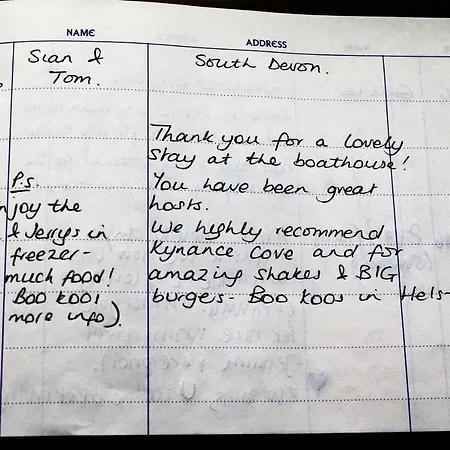 NAME
ADDRESS
Sian &
Tom.
South Devon.
Thank you for a lovely
stay at the boathouse!
You have been great
hosts.
We highly recommend
Kynance Cove and for
amazing shakes & BIG
burgers - Boo Koos in Hels-
P.s.
njoy the
& Jerrys in
freezer -
much food!
Boo Koos
more info).